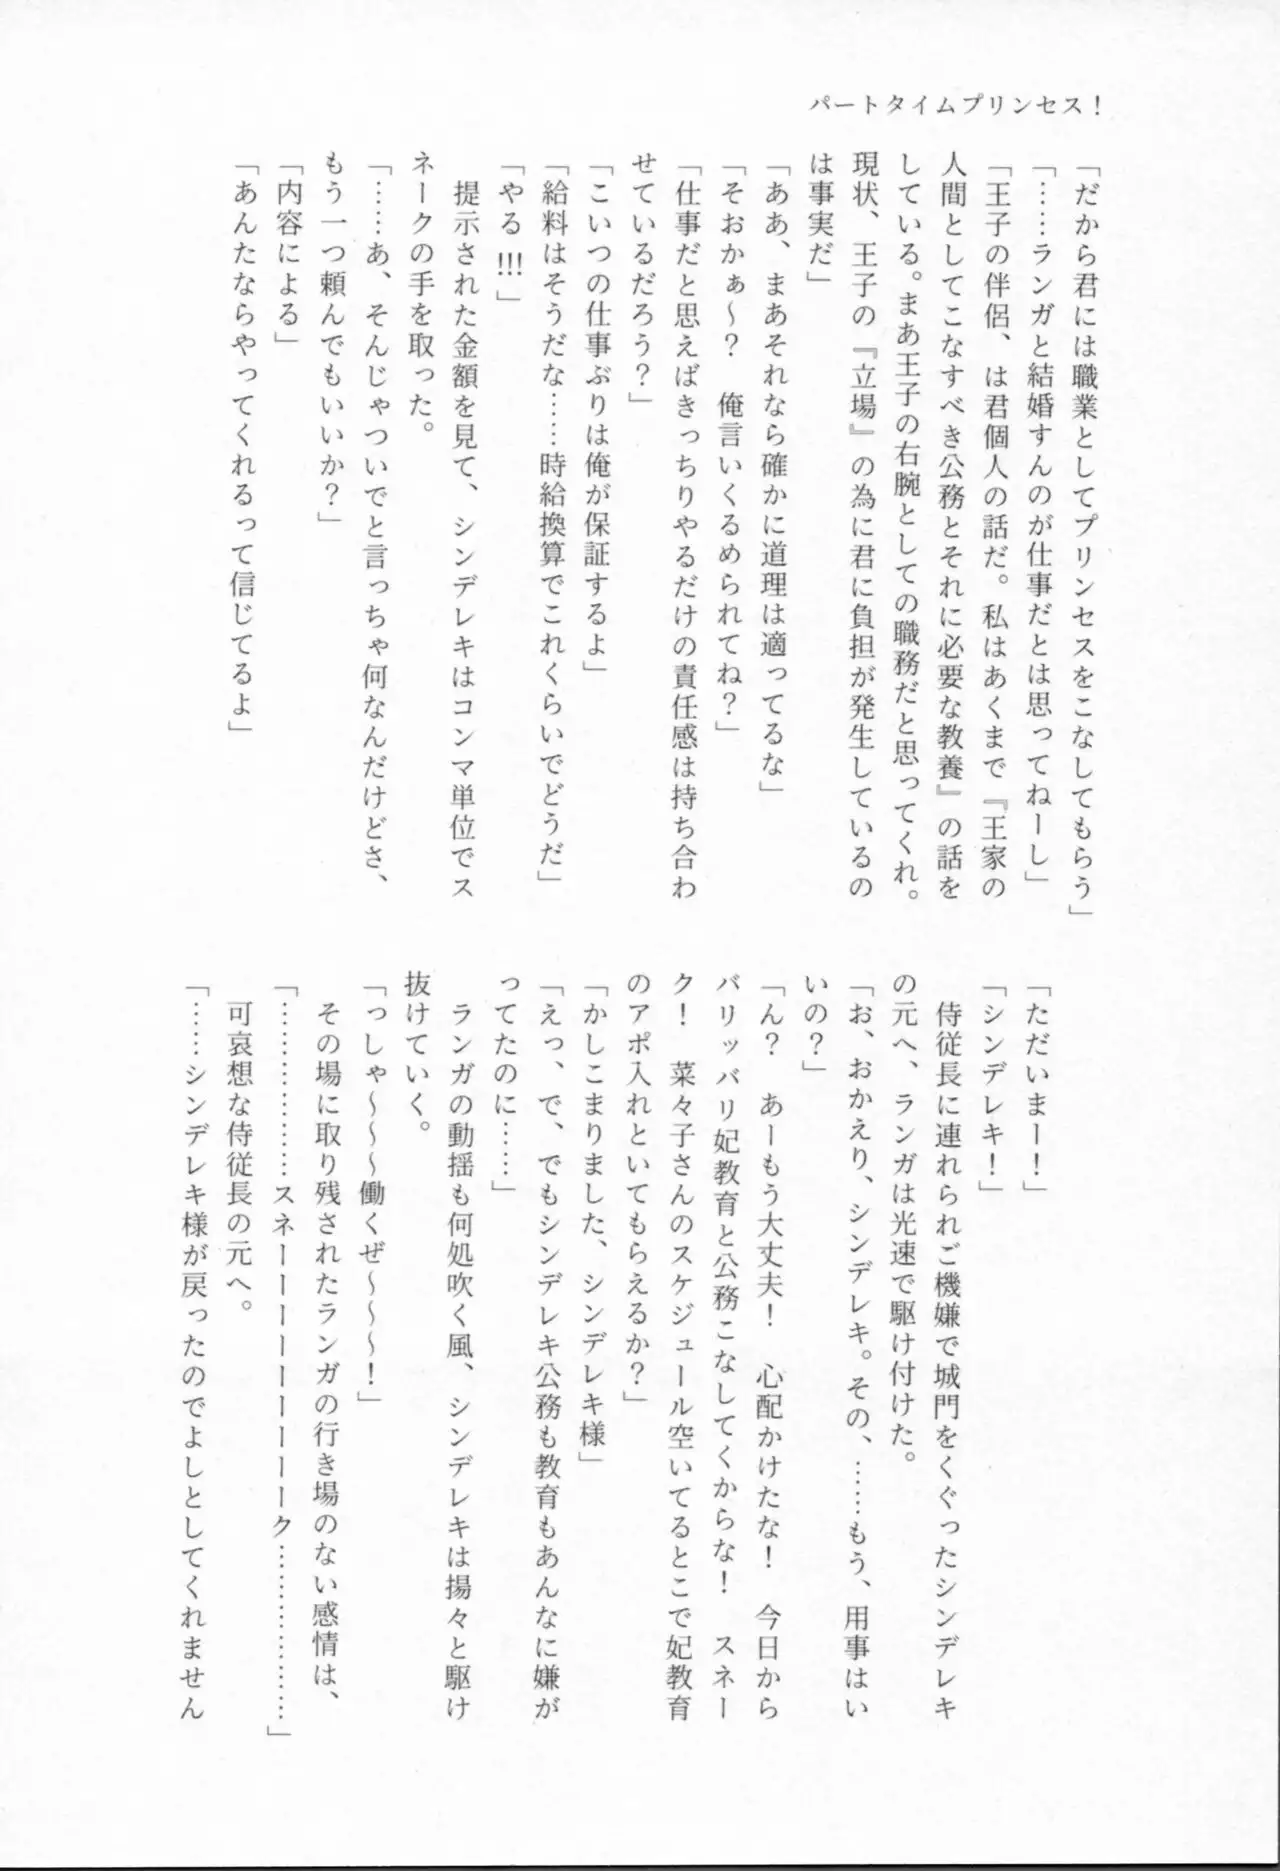 パートタイムプリンセス!
「だから君には職業としてプリンセスをこなしてもらう」
「……ランガと結婚すんのが仕事だとは思ってねーし」
「王子の伴侶、は君個人の話だ。私はあくまで『王家の
人間としてこなすべき公務とそれに必要な教養』の話を
している。まあ王子の右腕としての職務だと思ってくれ。
現状、王子の『立場』の為に君に負担が発生しているの
は事実だ」
「ああ、まあそれなら確かに道理は適ってるな」
「そおかぁ〜?　俺言いくるめられてね?」
「仕事だと思えばきっちりやるだけの責任感は持ち合わ
せているだろう?」
「こいつの仕事ぶりは俺が保証するよ」
「給料はそうだな……時給換算でこれくらいでどうだ」
「やる!!!」
　提示された金額を見て、シンデレキはコンマ単位でス
ネークの手を取った。
「……あ、そんじゃついでと言っちゃ何なんだけどさ、
もう一つ頼んでもいいか?」
「内容による」
「あんたならやってくれるって信じてるよ」
「ただいまー!」
「シンデレキ!」
　侍従長に連れられご機嫌で城門をくぐったシンデレキ
の元へ、ランガは光速で駆け付けた。
「お、おかえり、シンデレキ。その、……もう、用事はい
いの?」
「ん?　あーもう大丈夫!　心配かけたな!　今日から
バリッバリ妃教育と公務こなしてくからな!　スネー
ク!　菜々子さんのスケジュール空いてるとこで妃教育
のアポ入れといてもらえるか?」
「かしこまりました、シンデレキ様」
「えっ、で、でもシンデレキ公務も教育もあんなに嫌が
ってたのに……」
　ランガの動揺も何処吹く風、シンデレキは揚々と駆け
抜けていく。
「っしゃ〜〜〜〜働くぜ〜〜〜!」
　その場に取り残されたランガの行き場のない感情は、
「………………スネーーーーーーーーク………………」
　可哀想な侍従長の元へ。
「……シンデレキ様が戻ったのでよしとしてくれません